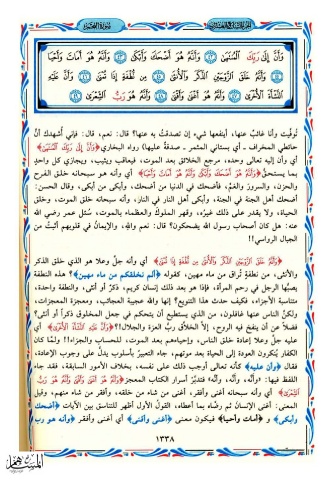 سورة النجم
وَأَنَّ إِلَى رَبِّكَ الْمُنتَهَى ﴿٤٢﴾ وَأَنَّهُ هُوَ أَضْحَكَ وَأَبْكَى ﴿٤٣﴾ وَأَنَّهُ هُوَ أَمَاتَ وَأَحْيَا
﴿٤٤﴾ وَأَنَّهُ خَلَقَ الزَّوْجَيْنِ الذَّكَرَ وَالْأُنثَى ﴿٤٥﴾ مِن نُّطْفَةٍ إِذَا تُمْنَى ﴿٤٦﴾ وَأَنَّ عَلَيْهِ
النَّشْأَةَ الْأُخْرَى ﴿٤٧﴾ وَأَنَّهُ هُوَ أَغْنَى وَأَقْنَى ﴿٤٨﴾ وَأَنَّهُ هُوَ رَبُّ الشِّعْرَى ﴿٤٩﴾
تُوفِّيت وأنا غائبٌ عنها، أينفعها شيء إن تصدقتُ به عنها؟ قال: نعم، قال: فإني أشهدك أنَّ
حائطي المخراف ـ أي بستاني المثمر ـ صدقةٌ عليها) رواه البخاري ﴿وَأَنَّ إِلَى رَبِّكَ الْمُنتَهَى﴾
أي وأن إليه تعالى وحده، مرجع الخلائق بعد الموت، فيعاقب ويثيب، ويجازي كل واحدٍ
بما يستحقُّ ﴿وَأَنَّهُ هُوَ أَضْحَكَ وَأَبْكَى وَأَنَّهُ هُوَ أَمَاتَ وَأَحْيَا﴾ أي وأنه هو سبحانه خلق الفرح
والحزن، والسرور والغمَّ، فأضحك في الدنيا من أضحك، وأبكى من أبكى، وقال الحسن:
أضحك أهل الجنة في الجنة، وأبكى أهل النار في النار، وأنه سبحانه خلق الموت، وخلق
الحياة، ولا يقدر على ذلك غيرُه، وقهر الملوك والعظماء بالموت، سُئل عمر رضي الله
عنه: هل كان أصحاب رسول الله يضحكون؟ قال: نعم والله، والإيمان في قلوبهم أثبتُ من
الجبال الرواسي!!
﴿وَأَنَّهُ خَلَقَ الزَّوْجَيْنِ الذَّكَرَ وَالْأُنثَى مِن نُّطْفَةٍ إِذَا تُمْنَى﴾ أي وأنه جلَّ وعلا هو الذي خلق الذكر
والأنثى، من نطفةٍ تُراق من ماء مهين، كقوله ﴿ألم نخلقكم من ماء مهين﴾؟ هذه النطفة
يصبُّها الرجل في رحم المرأة، فإذا هو بعد ذلك إنسان كريم، ذكرٌ أو أنثى، والنطفة واحدة،
متناسبة الأجزاء، فكيف حدث هذا التنويع؟ إنها والله عجيبة العجائب، ومعجزة المعجزات،
ولكنَّ الناس عنها غافلون، من الذي يستطيع أن يتحكم في جعل المخلوق ذكراً أو أنثى؟
فضلاً عن أن ينفخ فيه الروح، إلاَّ الخلاَّقُ ربُّ العزة والجلال!؟ ﴿وَأَنَّ عَلَيْهِ النَّشْأَةَ الْأُخْرَى﴾ أي
عليه جلَّ وعلا إعادة خلق الناس، وإحياءهم بعد الموت، للحساب والجزاء!! ولمَّا كان
الكفار يُنكرون العودة إلى الحياة بعد موتهم، جاء التعبيرُ بأسلوب يدلُّ على وجوب الإعادة،
فقال ﴿وأن عليه﴾ كأنه تعالى أوجب ذلك على نفسه، بخلاف الأمور السابقة، فقد جاء
اللفظ فيها: «وأنه، وأنَّه، وأنَّه» فتدبَّرْ أسرار الكتاب المعجز ﴿وَأَنَّهُ هُوَ أَغْنَى وَأَقْنَى وَأَنَّهُ هُوَ رَبُّ
الشِّعْرَى﴾ أي وأنه سبحانه أغنى وأفقر، أغنى من شاء من خلقه، وأفقر من شاء منهم، وقيل
المعنى: أغنى الإنسانَ ثم رضَّاه بما أعطاه، القولُ الأول أظهر للتناسق بين الآيات ﴿أضحك
وأبكى﴾ و ﴿أمات وأحيا﴾ فيكون معنى ﴿أغنى وأقنى﴾ أي أغنى وأفقر ﴿وأنه هو رب
١٣٣٨